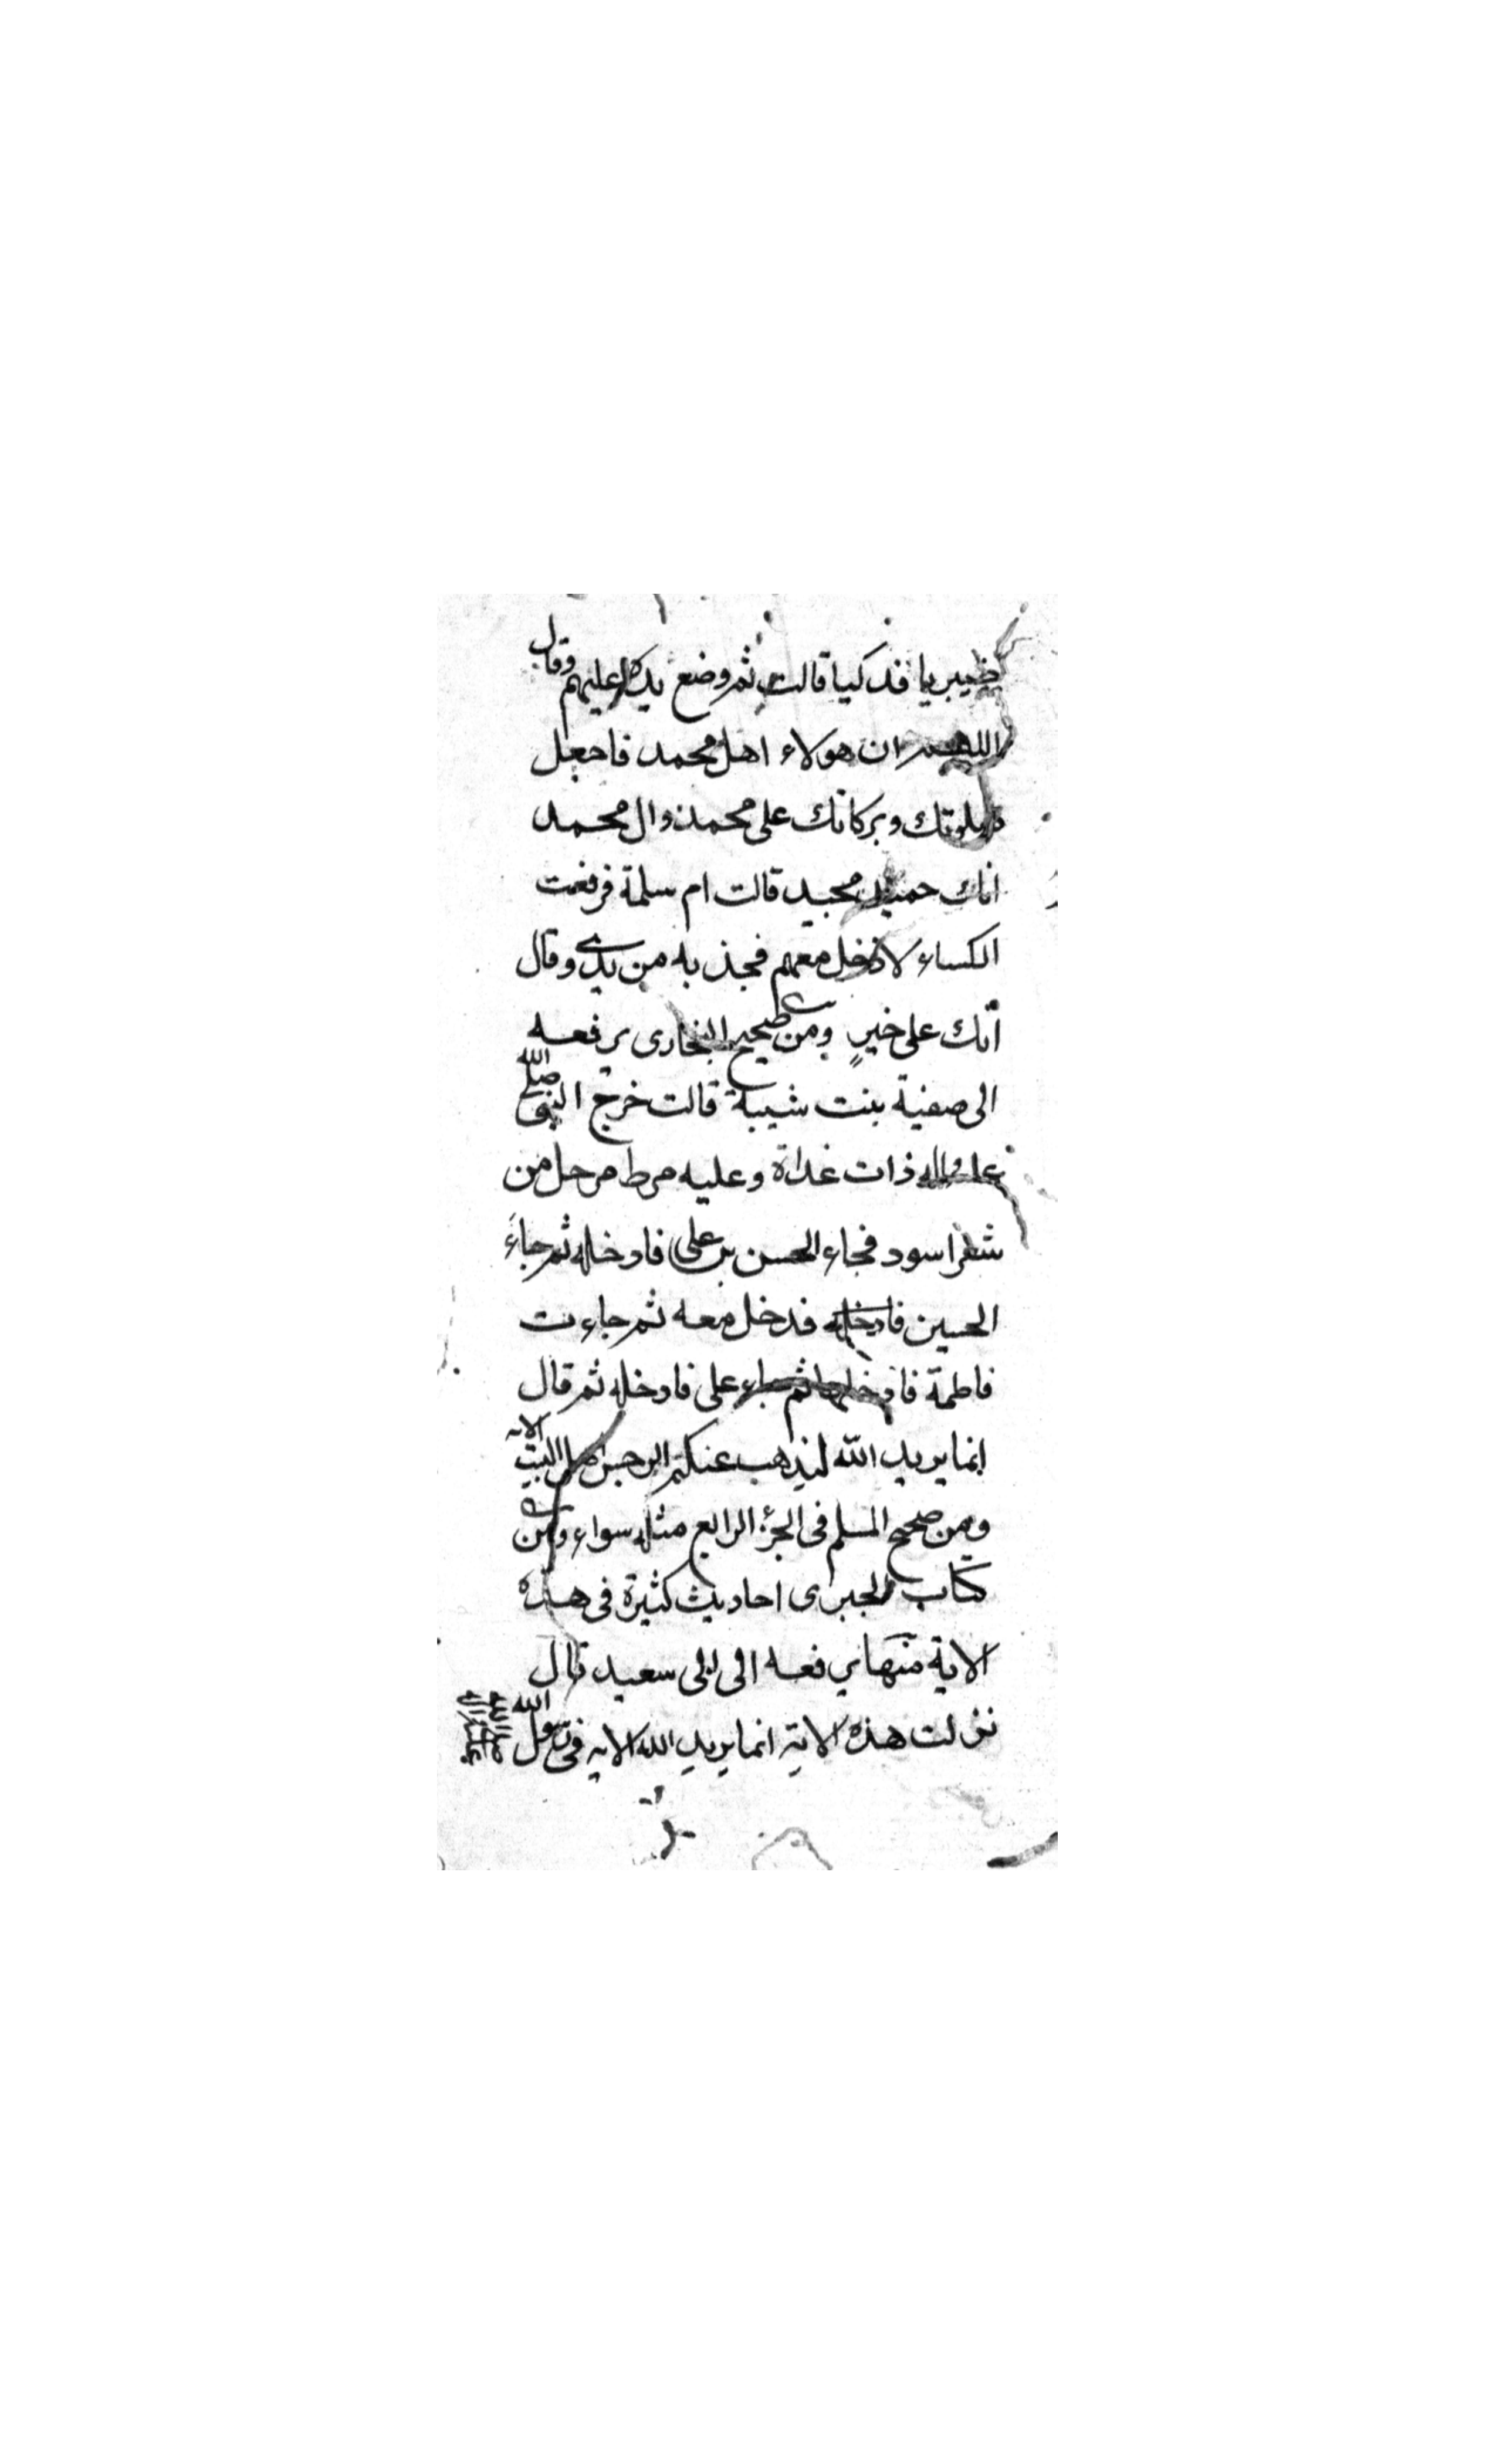 خيبريا فدكيا قالت ثم وضع يده عليهم وقال
اللهم ان هولاء اهل محمد فاجعل
صلوتك وبركاتك على محمد وال محمد
انك حميد مجيد قالت ام سلمة فرفعت
الكساء لادخل معهم فجذبه من يدى وقال
انك على خيرٍ ومن صحيح البخارى يرفعه
الى صفية بنت شيبة قالت خرج النبى صلى الله
عليه واله ذات غداة وعليه مرط مرحل من
شعر اسود فجاء الحسن بن على فادخله ثم جاءَ
الحسين فادخله فدخل معه ثم جاءت
فاطمة فادخلها ثم جاء على فادخله ثم قال
انما يريد الله ليذهب عنكم الرجس اهل البيت الايه
ومن صحيح المسلم فى الجزء الرابع مثله سواء ومن
كتاب الحبرى احاديث كثيرة فى هذه
الاية منها يرفعه الى ابى سعيد قال
نزلت هذه الاية انما يريد الله الايه فى رسول الله